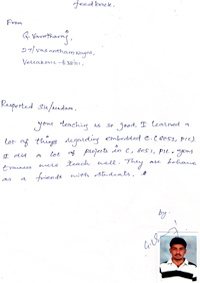 feedback.
From
G. Vasantharaj,
Respected Sir/madam,
your teaching is so good. I learned a
lot of things regarding embedded C. (8051, PIC)
I did a lot of projects in C, 8051, PIC. your
trainees were teach well. They are behave
as a friends with students.
by